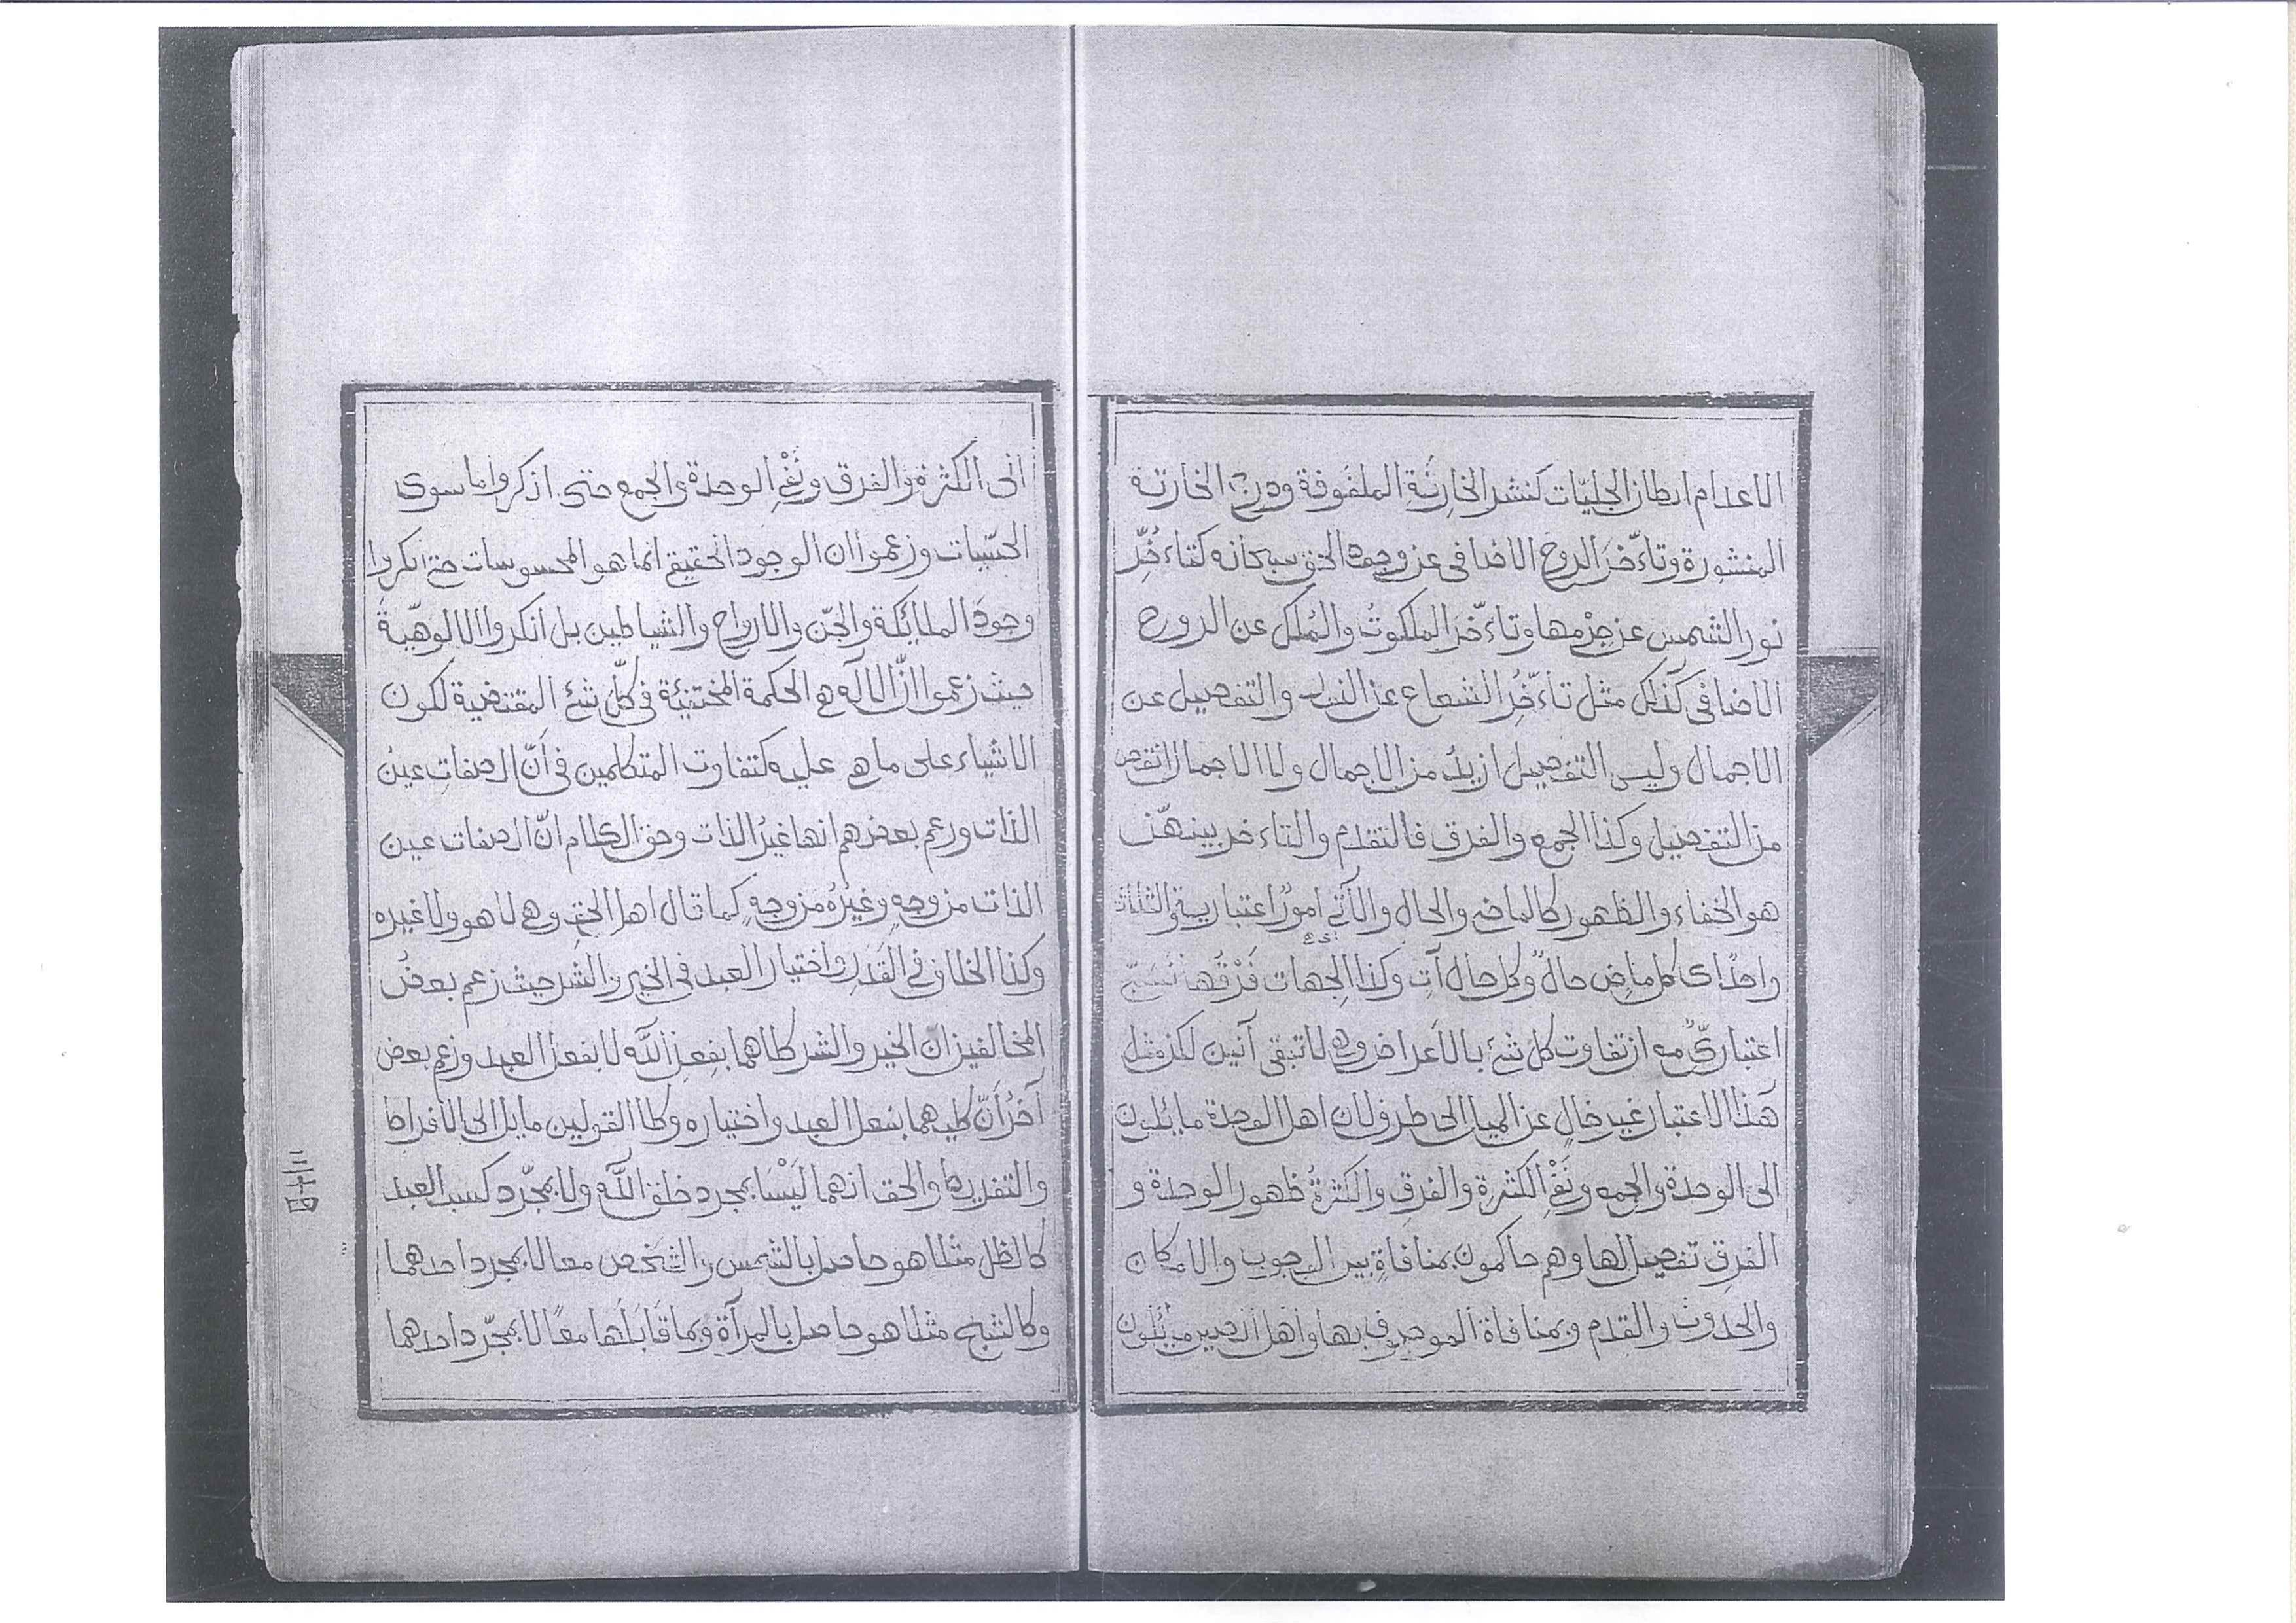 الاعدام ابطان الجليّات كنشر الخارِتَة الملفوفة ودرج الخارتة
المنشورة وتاءخّر الروح الاضافى عن وجود الحق سبحانه كتاءخّر
نور الشمس عن جِرْمها وتاءخّر الملكوتُ والمُلكِ عن الروح
الاضافى كذلك مثل تاءخّرُ الشعاع عن النير والتفصيل عن
الاجمال وليس التفصيل ازيدُ من الاجمال ولا الاجمال انقص
من التفصيل وكذا الجمع والفرق فالتقدم والتاءخر بينهنّ
هو الخفاء والظهور كالماضى والحال والآتى امورٌ اعتبارية والثلاث
واحدٌ اى كل ماضٍ حالٌ وكل حال آتٍ وكذا الجهات فَرْقُها
اعتبارىٌّ مع ان تفاوت كلّ شئ بالاعراض وهى لا تبقى آنين لكن مثل
هذا الاعتبار غير خالٍ عن الميل الى طرف لان اهل الوحدة مايلون
الى الوحدة والجمع ونَفْىِ الكثرة والفرقِ والكثرةُ ظهور الوحدة و
الفرق تفصيل لها وهم حاكمون بمنافاةٍ بين الوجوب والامكان
والحدوث والقدم وبمنافاة الموصوف بها واهل
الى الكثرة والفرق ونَفْىِ الوحدة والجمع حتى انكروا ما سوى
الحسّيات وزعموا ان الوجود الحقيقى انما هو المحسوسات حتى انكروا
وجودَ الملائكة والجنّ والارواح والشياطين بل انكروا الالوهيّةَ
حيث زعموا انّ الاله هى الحكمة المختفية فى كلّ شئ المقتضية لكون
الاشياء على ما هى عليه كتفاوت المتكلمين فى انّ الصفات عين
الذات وزعم بعضهم انها غيرُ الذات وحق الكلام انّ الصفات عين
الذات من وجهٍ وغيرُهُ من وجهٍ كما قال اهل الحق وهى لا هو ولا غيره
وكذا الخلاف فى القَدَرِ واختيار العبد فى الخير والشر حيث زعم بعضُ
المخالفين ان الخير والشر كلاهما بفعل اللّه لا بفعل العبد وزعم بعض
آخرُ انّ كليهما بفعل العبد واختياره وكلا القولين مايل الى الافراط
والتفريط والحق انهما لَيْسَا بمجرد خلق اللّه ولا بمجرّد كسب العبد
كالظل مثلا هو حاصل بالشمس والشخص معا لا بمجرد احدهما
وكالشبح مثلا هو حاصل بالمرآة وبما قَابَلَها معًا لا بمجرّد احدهما